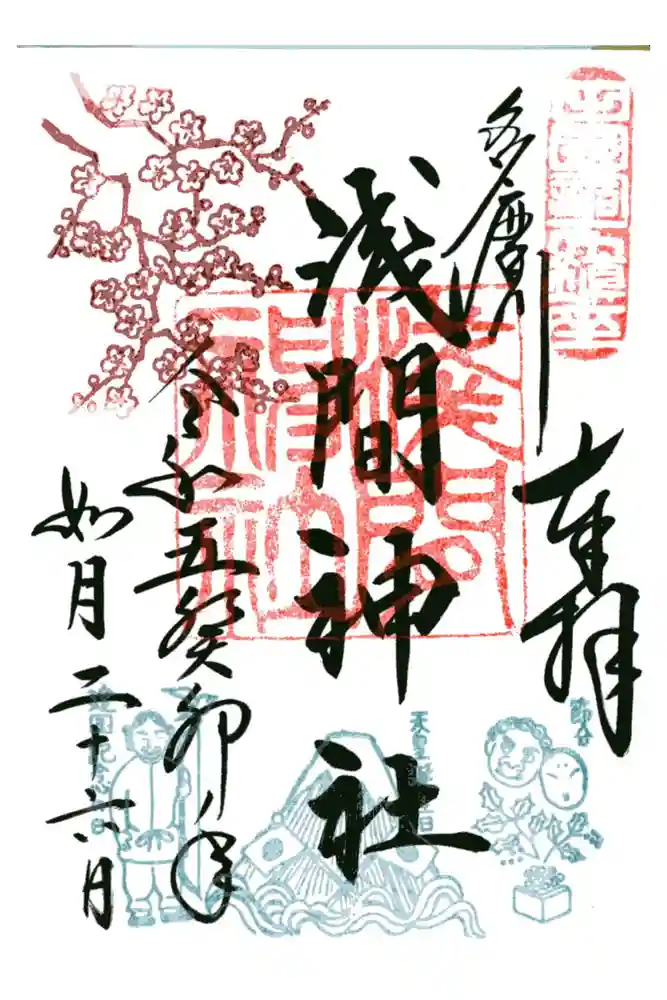 多摩川
奉拝
浅間神社
令和五癸卯年
如月二十六日
節分
天皇誕生日
建国記念の日